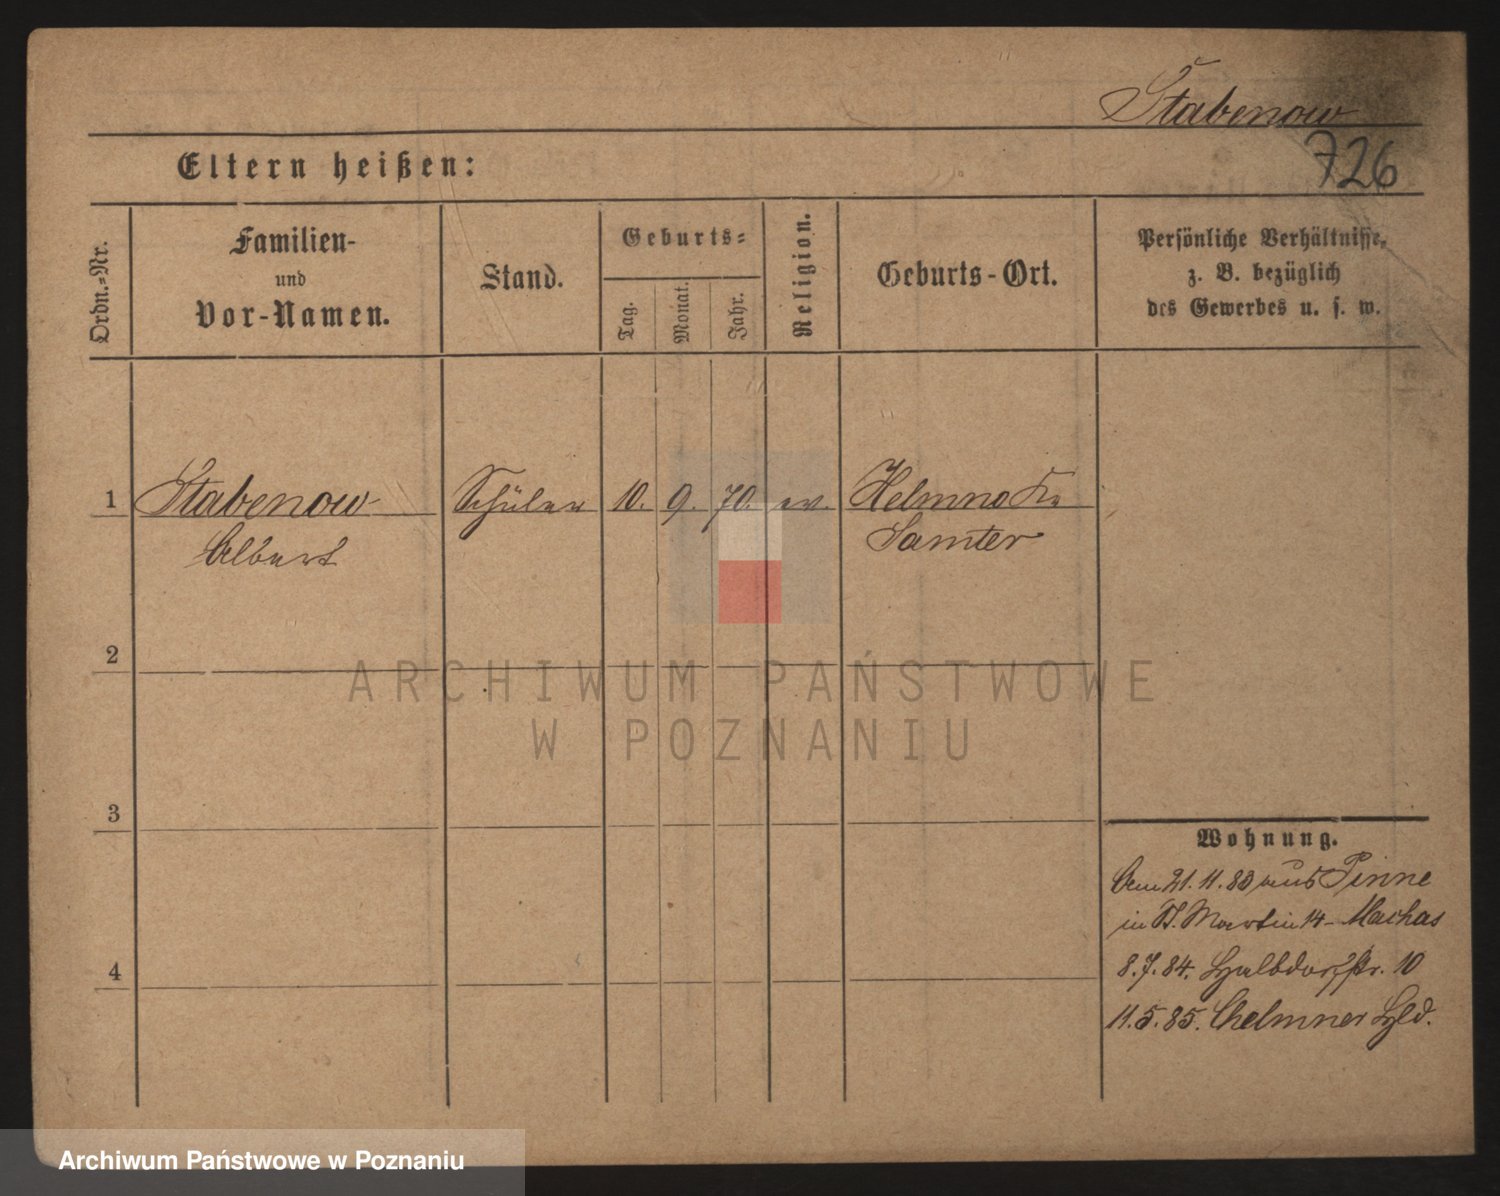 Stabenow
726
Eltern heißen:
Ordn.-Nr.
Familien-
und
Vor-Namen.
Stand.
Geburts-
Tag.
Monat.
Jahr.
Religion.
Geburts-Ort.
Persönliche Verhältnisse,
z. B. bezüglich
des Gewerbes u. s. w.
1 Stabenow Schüler 10. 9. 70. ev. Helmno Kr
Albert Samter
2
3
4
Wohnung.
Am 21.11.83 aus Pinne
in St. Martin 14 - Machas
8.7.84. Halbdorfstr. 10
11.5.85. Chelmner Hld.
ARCHIWUM PAŃSTWOWE
W POZNANIU
Archiwum Państwowe w Poznaniu